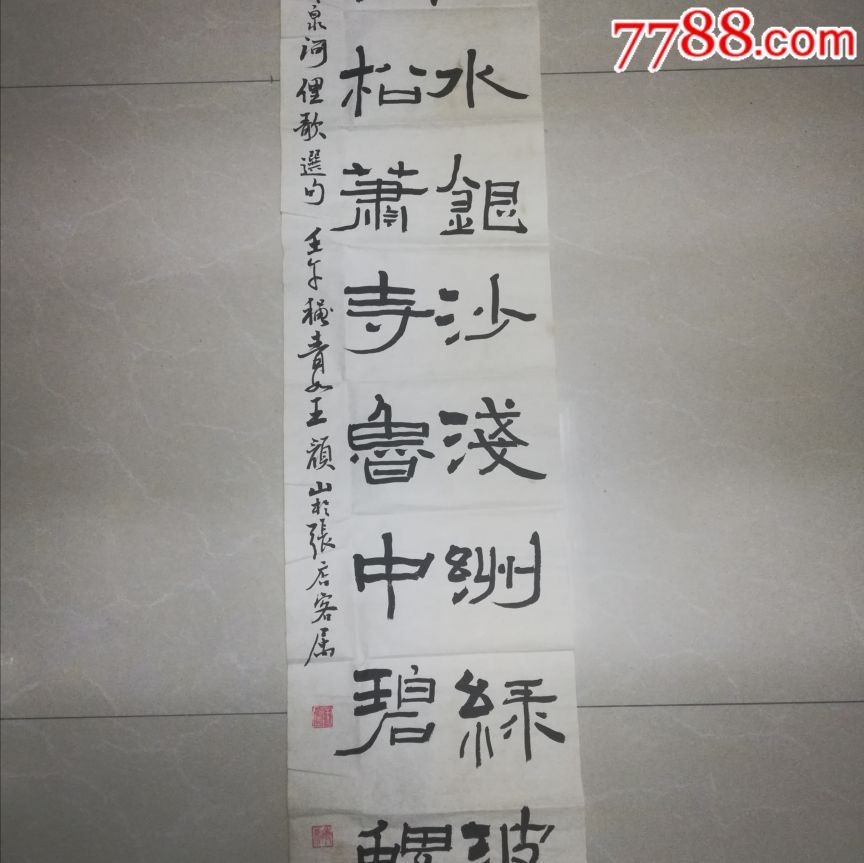 7788.com
水銀沙淺洲綠波
松蕭寺魯中碧
泉河俚歌選句 壬午穐青女王顏山於張店客居